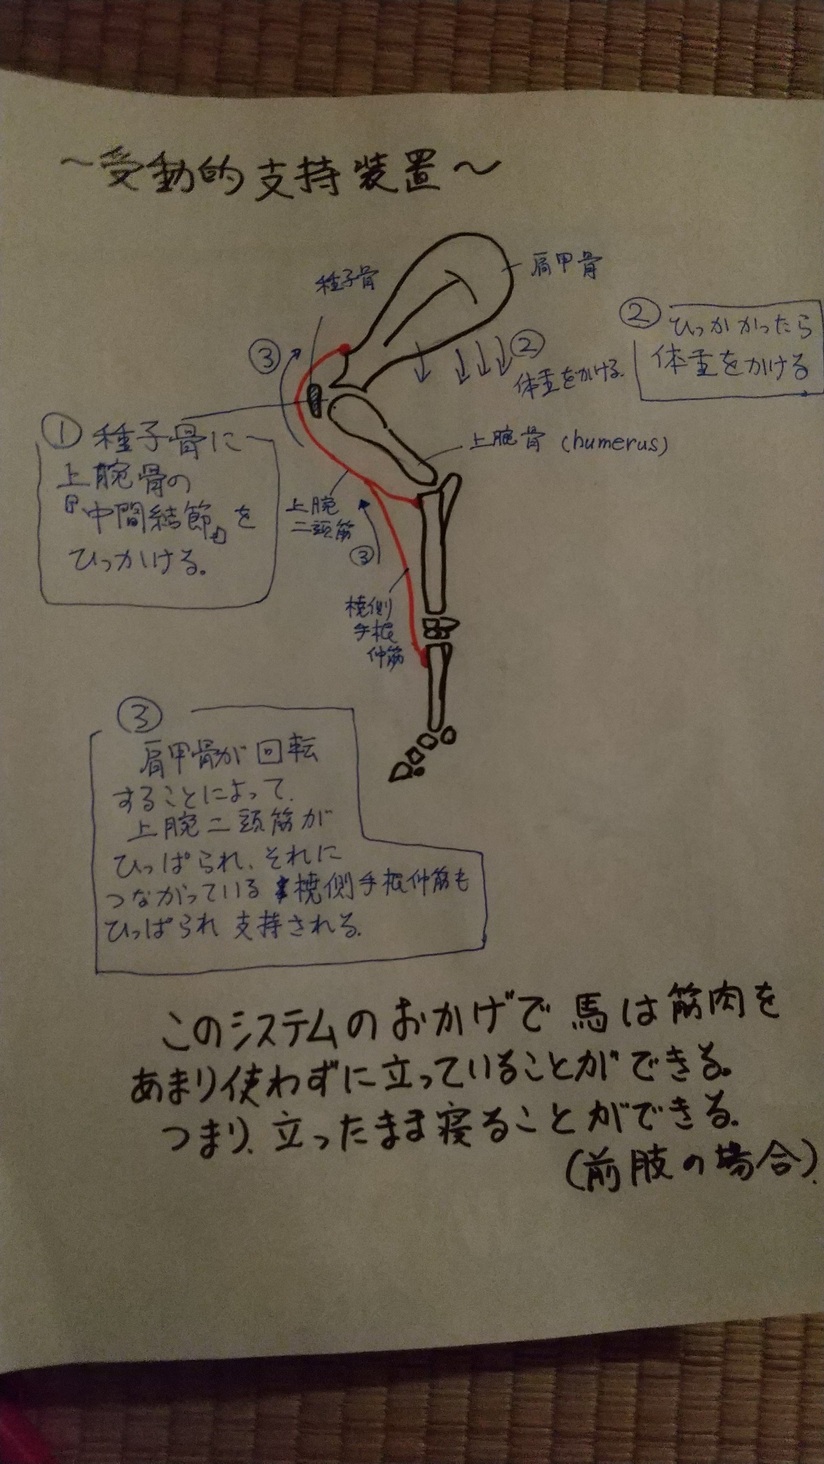 〜受動的支持装置〜
種子骨
肩甲骨
③
②
体重をかける.
② ひっかかったら
体重をかける
① 種子骨に
上腕骨の
『中間結節』を
ひっかける.
上腕骨 (humerus)
上腕
二頭筋
③
橈側
手根
伸筋
③
肩甲骨が回転
することによって、
上腕二頭筋が
ひっぱられ、それに
つながっている 橈側手根伸筋も
ひっぱられ 支持される.
このシステムのおかげで 馬は筋肉を
あまり使わずに立っていることができる。
つまり、立ったまま寝ることができる.
(前肢の場合).